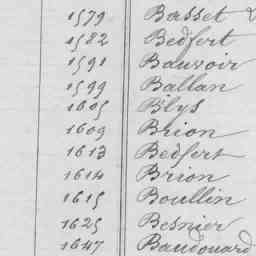 1579 Basset &
1582 Bedfert
1591 Bauvoir
1599 Ballan
1605 Blys
1609 Brion
1613 Bedfert
1614 Brion
1615 Boullin
1625 Besnier
1647 Baudouard